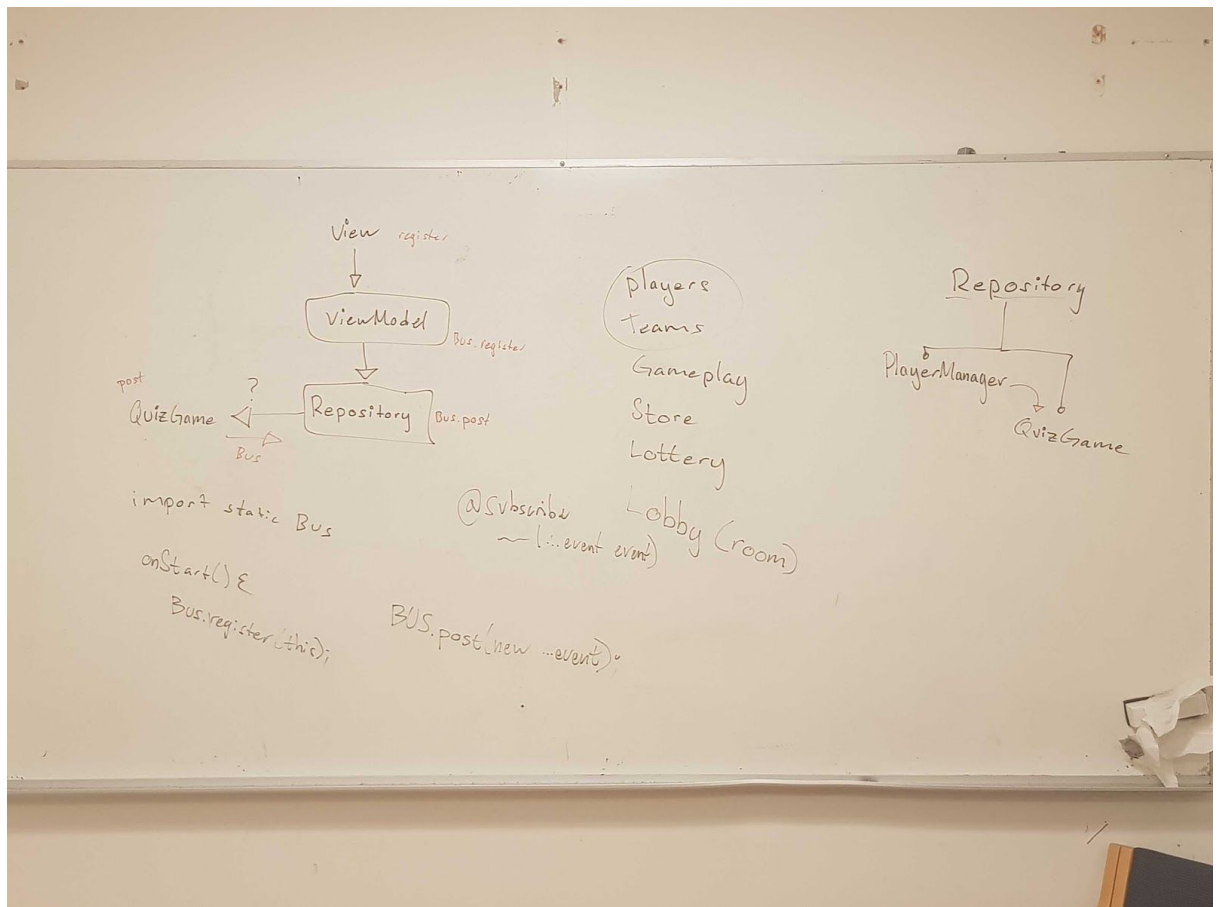 View register
ViewModel
Bus.register
post
?
QuizGame
Repository
Bus.post
Bus
import static Bus
onStart() {
Bus.register(this);
@Subscribe
(...event event)
BUS.post(new ...event);
players
Teams
Gameplay
Store
Lottery
Lobby (room)
Repository
PlayerManager
QuizGame